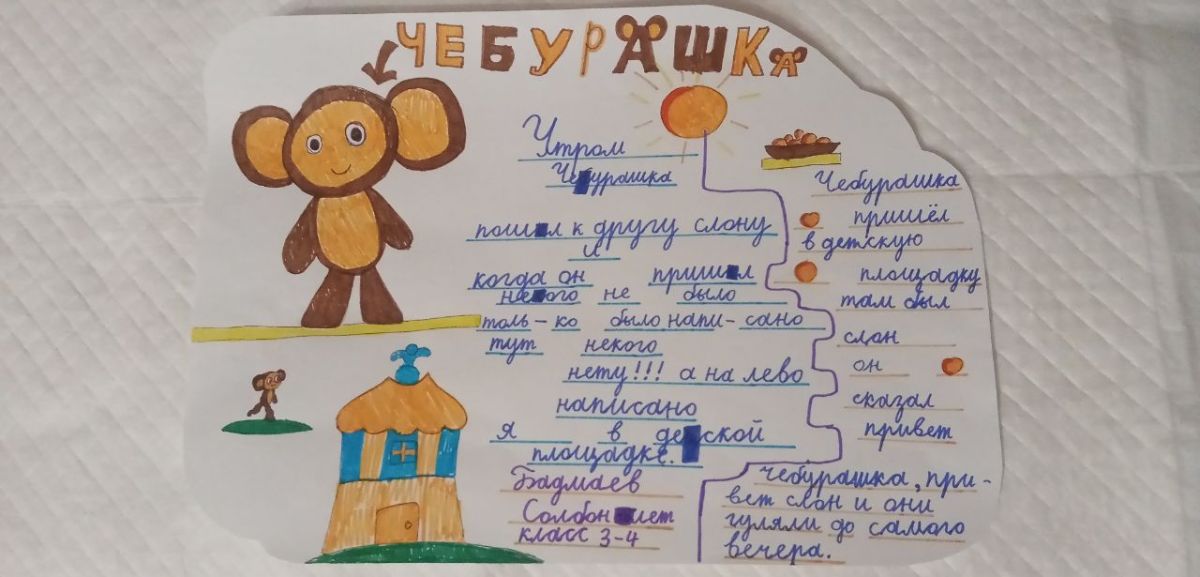 ЧЕБУРАШКА
Утром
Чебурашка
пошёл к другу слону
и
когда он пришёл
некого не было
толь-ко было напи-сано
тут некого
нету!!! а на лево
написано
я в детской
площадке.
Бадмаев
Солбон лет
класс 3-4
Чебурашка
пришёл
в детскую
площадку
там был
слон
он
сказал
привет
чебурашка, при-
вет слон и они
гуляли до самого
вечера.